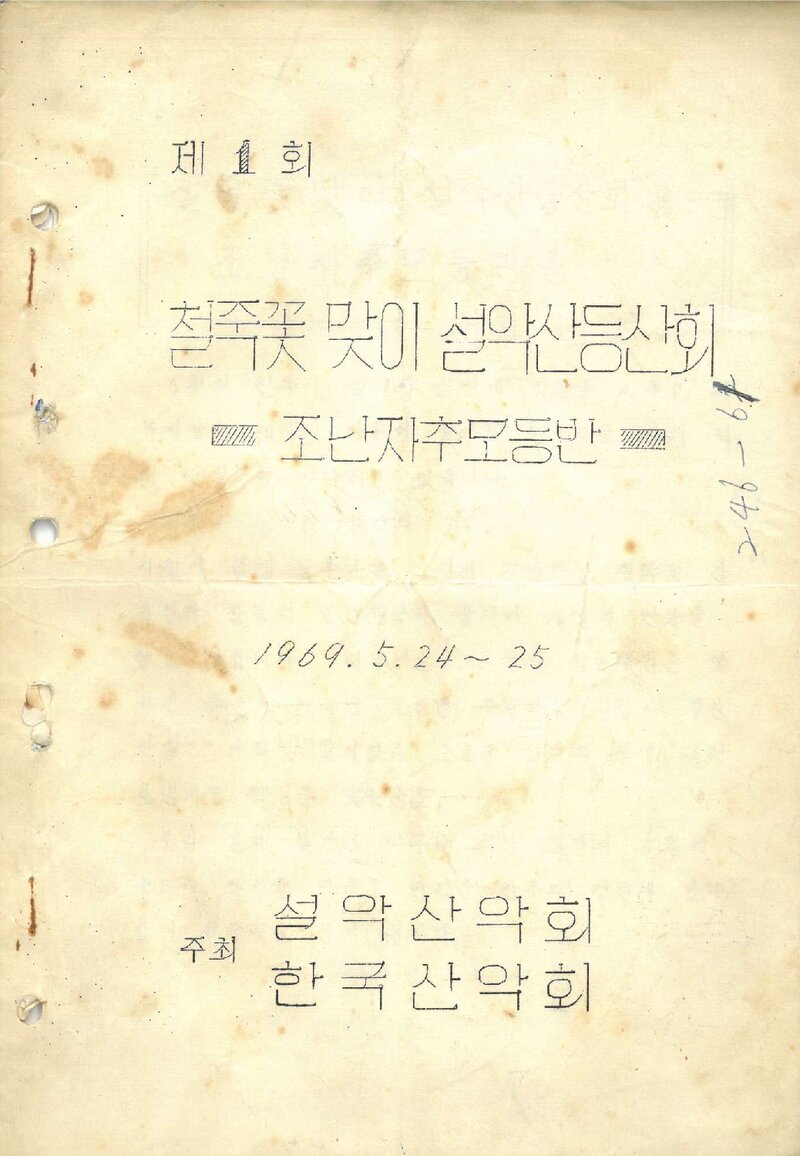 제 1 회
철쭉꽃 맞이 설악산등산회
조난자추모등반
246-61
1969. 5. 24 ~ 25
주최
설악산악회
한국산악회